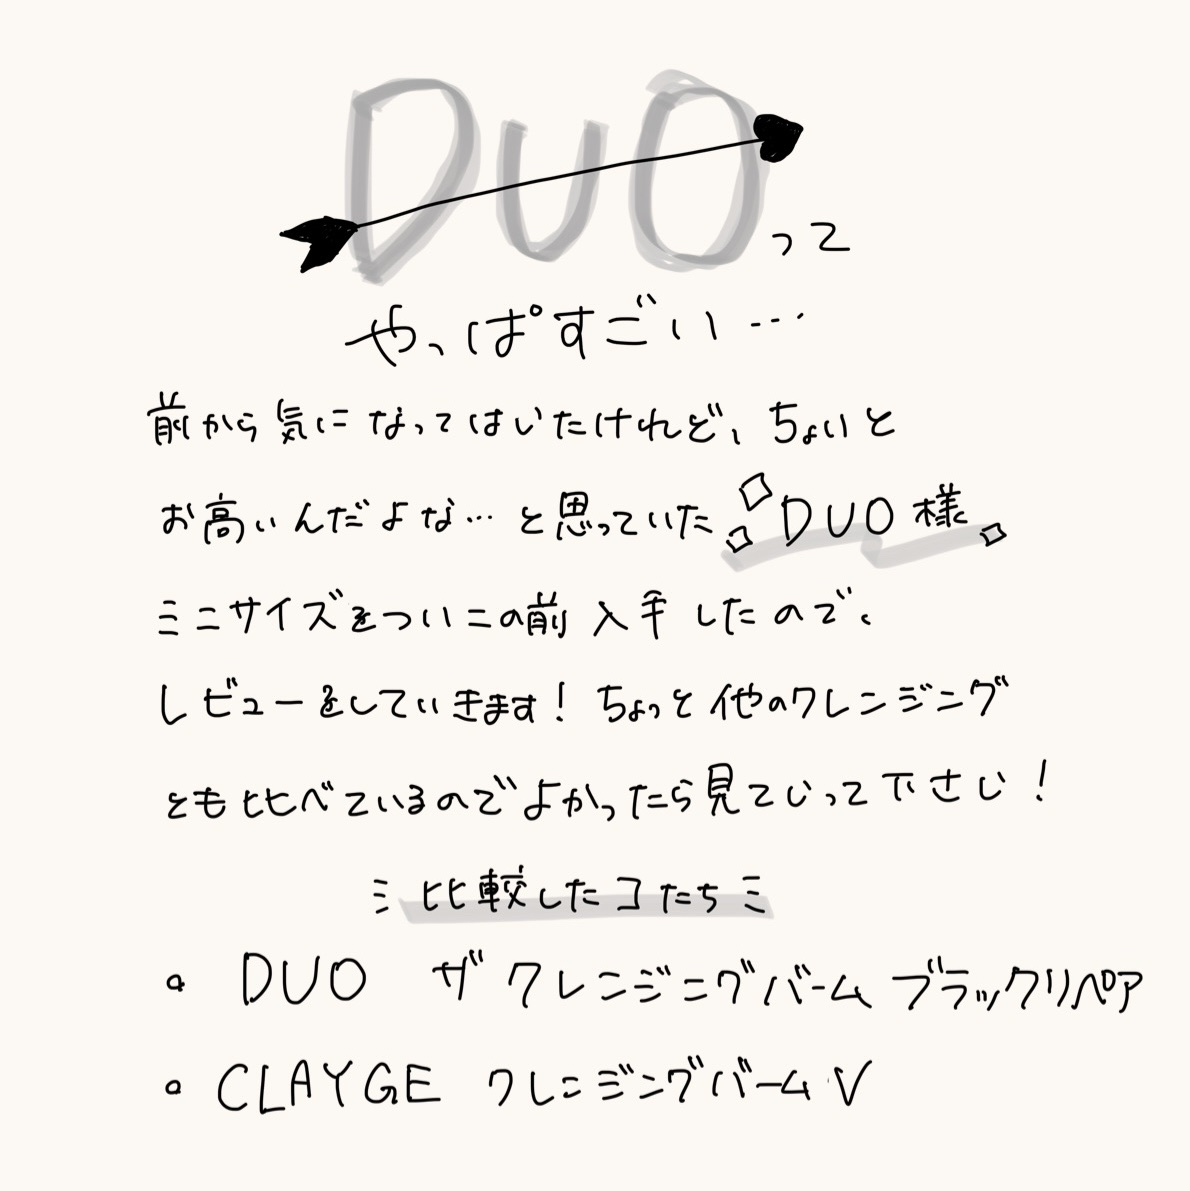 DUOって
やっぱすごい…
前から気になってはいたけれど、ちょいと
お高いんだよな…と思っていたDUO様
ミニサイズをついこの前入手したので、
レビューをしていきます！ちょっと他のクレンジング
とも比べているのでよかったら見ていって下さい！
ミ比較したコたちミ
。DUO ザ クレンジングバーム ブラックリペア
。CLAYGE クレンジングバームV